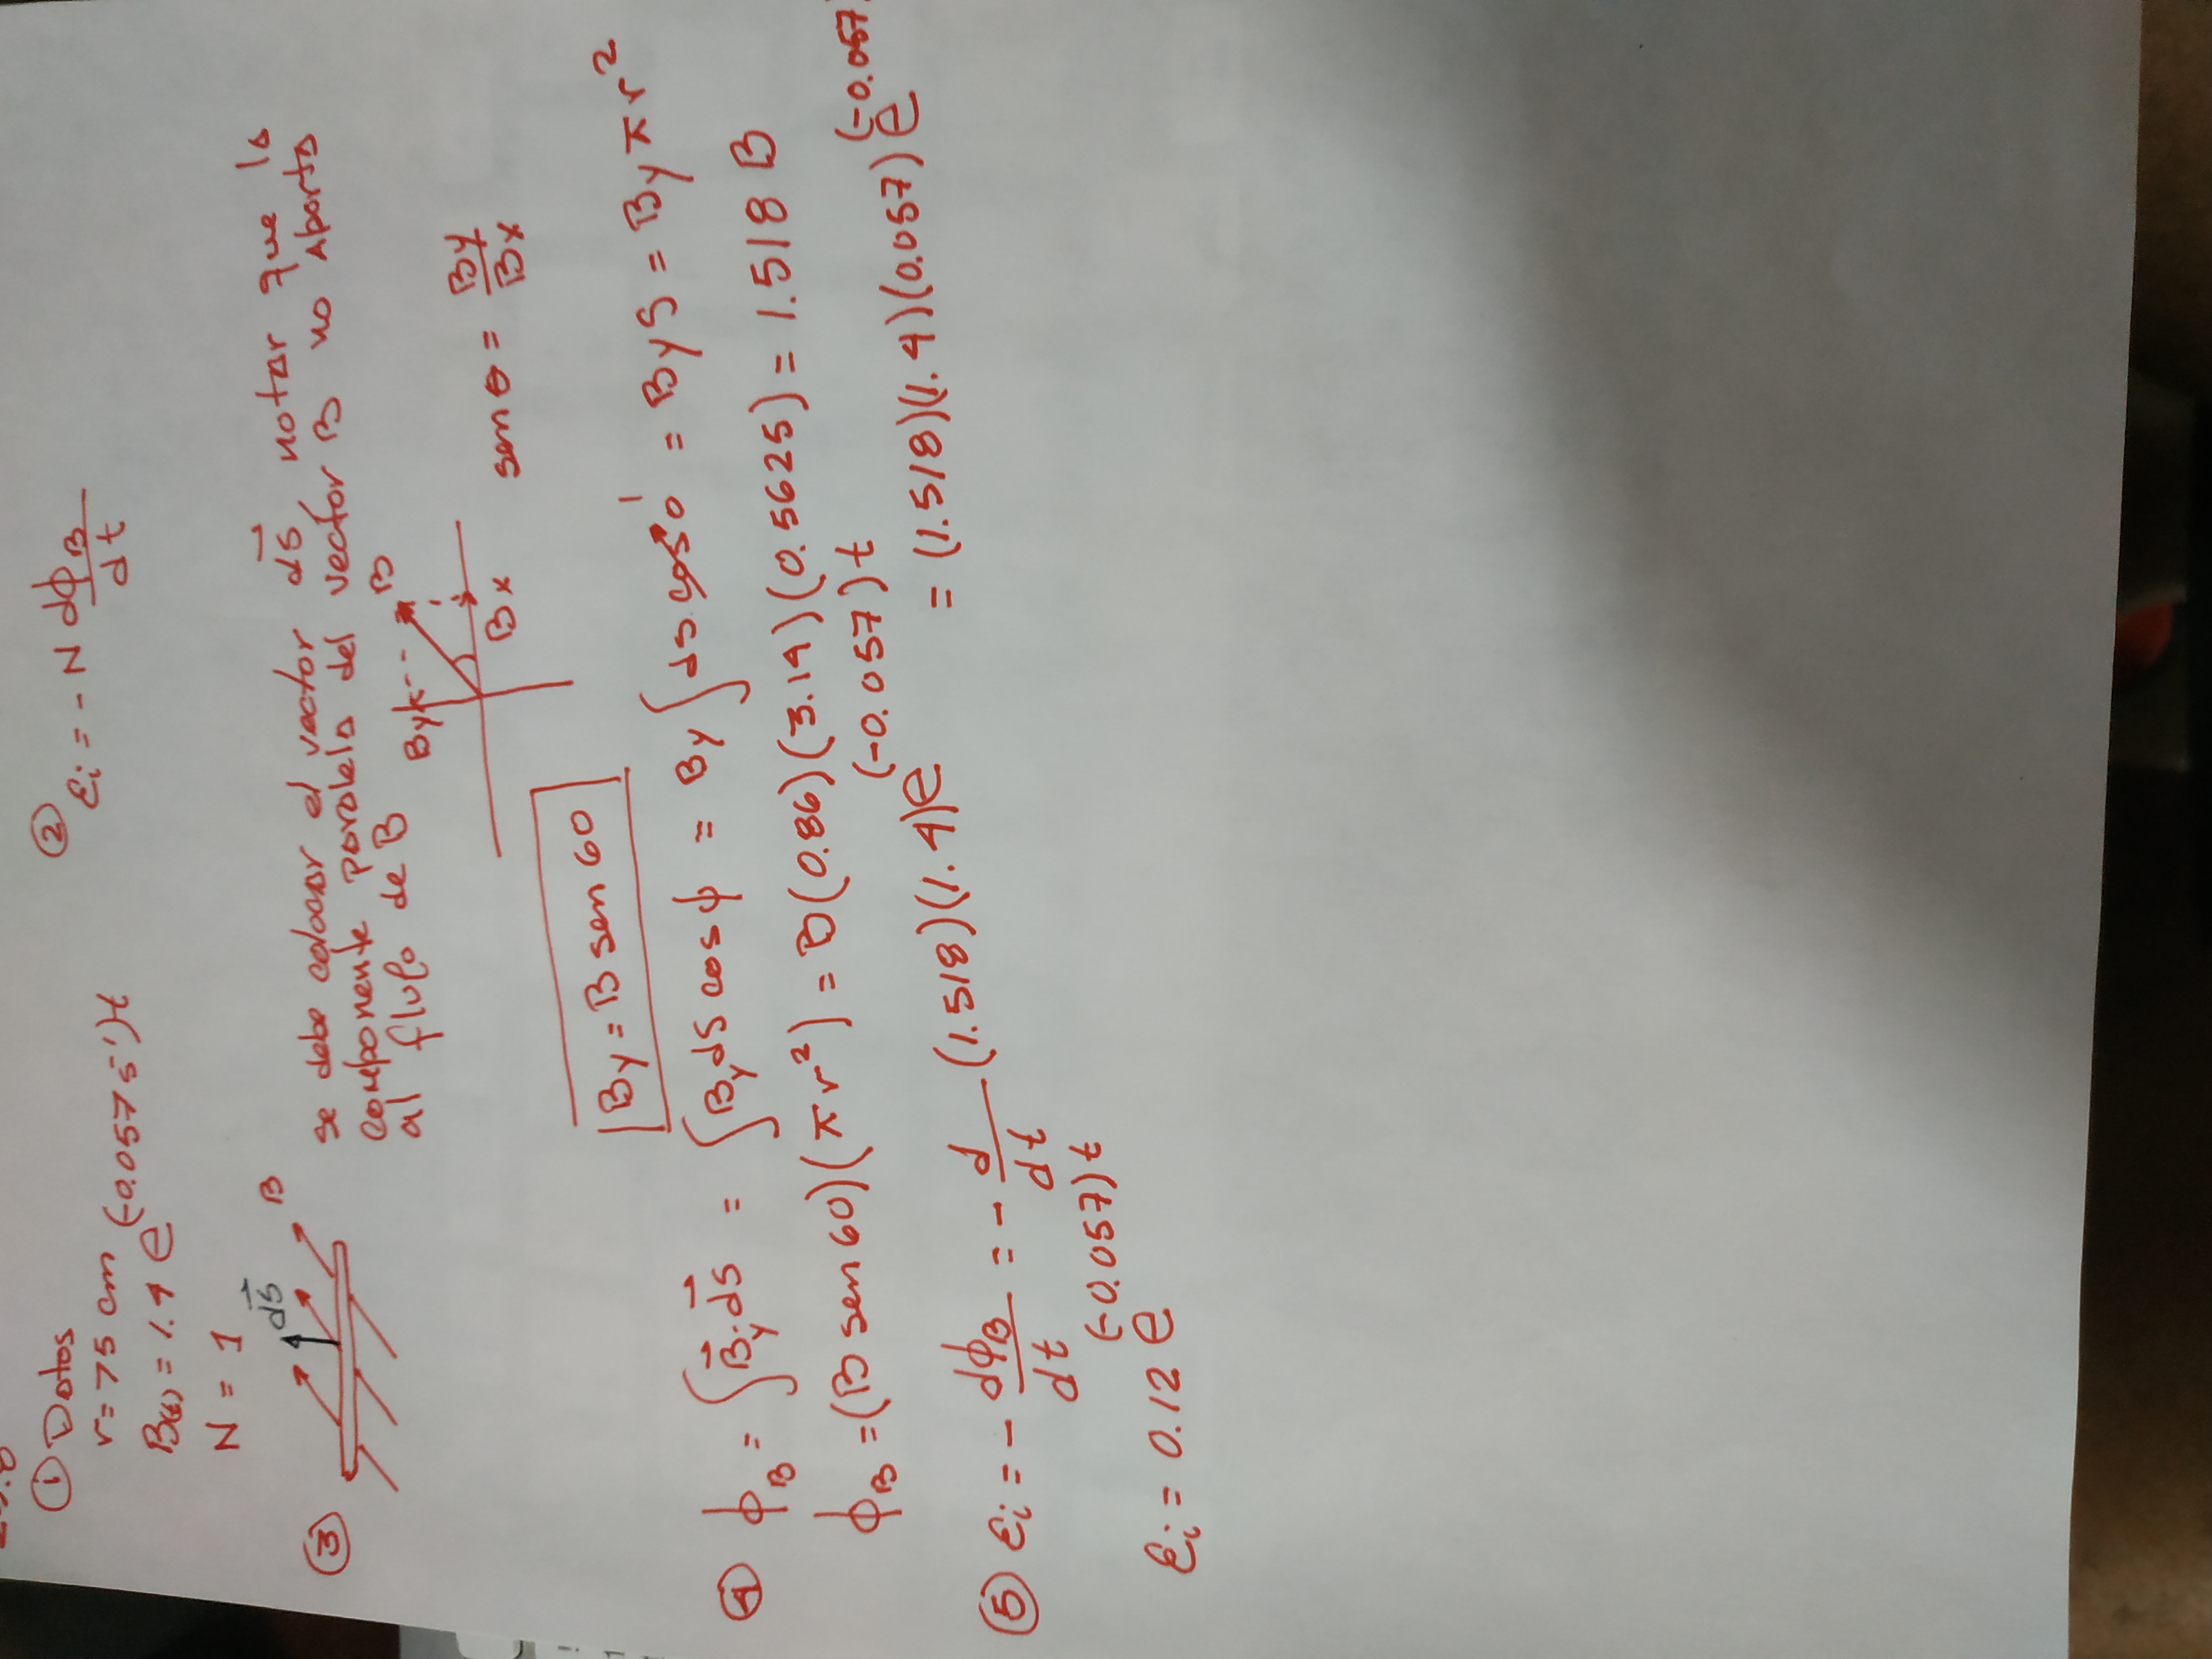 ① Datos
r = 75 cm
B(t) = 1.4 e^(-0.057 s⁻¹)t
N = 1
② Ɛi = - N dϕB/dt
③ dS⃗ B
se debe colocar el vector dS⃗, notar que la
componente paralela del vector B no aporta
al flujo de B
By B
Bx
sen θ = By/Bx
By = B sen 60
④ ϕB = ∫B⃗y·dS⃗ = ∫By dS cos ϕ = By ∫ds cos 0 1 = By S = By π r²
ϕB = (B sen 60)(π r²) = B(0.86)(3.14)(0.5625) = 1.518 B
⑤ Ɛi = - dϕB/dt = - d/dt (1.518)(1.4)e^(-0.057)t = (1.518)(1.4)(0.057) e^(-0.057)
Ɛi = 0.12 e^(-0.057)t